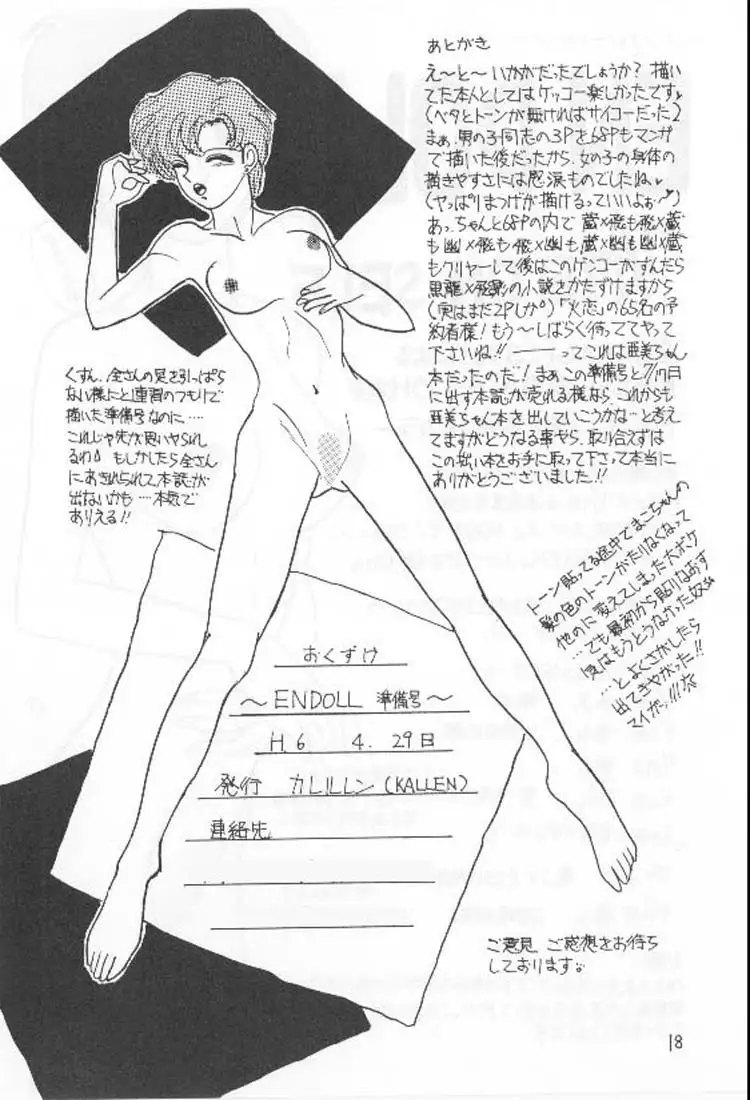 あとがき
え〜と〜いかがだったでしょうか? 描い
てた本人としてはケッコー楽しかったです。
(ベタとトーンが無ければサイコーだった
まぁ、男の子同志の3Pを68Pもマンガ
で描いた後だったから、女の子の身体の
描きやすさには感涙ものでしたね。
(ヤっぱりまつげが描けるっていいよぉ〜)
あっ、ちゃんと68Pの内で蔵×飛も飛×蔵
も幽×飛も飛×幽も、蔵×幽も幽×蔵
もクリヤーして後はこのゲンコーがすんだら
黒龍×飛影の小説をかたずけますから
(実はまだ2Pしか)「火恋」の65名の予
約者様!もう〜しばらく待っててやって
下さいね!! ーーーってこれは亜美ちゃん
本だったのだ!まぁ、この準備号と7/17日
に出す本誌が売れる様なら、これからも
亜美ちゃん本を出していこうかな…と考え
てますがどうなる事やら、取り合えずは
この拙い本をお手に取って下さって本当に
ありがとうございました!!
くすん、全さんの足を引っぱら
ない様にと練習のつもりで
描いた準備号なのに‥‥
これじゃ先が思いやられ
るわ もしかしたら全さん
にあきれられて本誌が
出ないかも…本気で
ありえる!!
トーン貼ってる途中でまこちゃんの
髪の色のトーンがたりなくなって
他のに変えてしまった大ボケ
…でも最初から貼りなおす
気はもうとうなかった奴
…とよくさがしたら
出てきやがった!!
マイガッ!!!
おくずけ
〜ENDOLL 準備号〜
H.6 4.29日
発行 カレルレン(KALLEN)
連絡先
ご意見、ご感想をお待ち
しております。
18